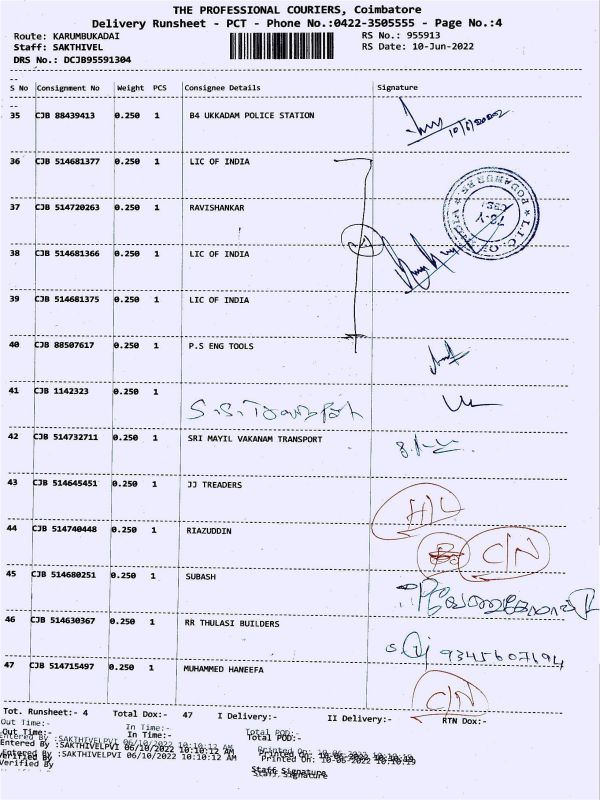 THE PROFESSIONAL COURIERS, Coimbatore
Delivery Runsheet - PCT - Phone No.:0422-3505555 - Page No.:4
Route: KARUMBUKADAI RS No.: 955913
Staff: SAKTHIVEL RS Date: 10-Jun-2022
DRS No.: DCJB95591304
S No Consignment No Weight PCS Consignee Details Signature
35 CJB 88439413 0.250 1 B4 UKKADAM POLICE STATION
36 CJB 514681377 0.250 1 LIC OF INDIA
37 CJB 514720263 0.250 1 RAVISHANKAR
38 CJB 514681366 0.250 1 LIC OF INDIA
39 CJB 514681375 0.250 1 LIC OF INDIA
40 CJB 88507617 0.250 1 P.S ENG TOOLS
41 CJB 1142323 0.250 1
42 CJB 514732711 0.250 1 SRI MAYIL VAKANAM TRANSPORT
43 CJB 514645451 0.250 1 JJ TREADERS
H/L
44 CJB 514740448 0.250 1 RIAZUDDIN C/N
45 CJB 514680251 0.250 1 SUBASH
46 CJB 514630367 0.250 1 RR THULASI BUILDERS
9345607694
47 CJB 514715497 0.250 1 MUHAMMED HANEEFA
C/N
Tot. Runsheet:- 4 Total Dox:- 47 I Delivery:- II Delivery:- RTN Dox:-
Out Time:- In Time:- Total POD:-
Out Time:- In Time:- Total POD:-
Entered By :SAKTHIVELPVI 06/10/2022 10:10:12 AM Printed On: 10-06-2022 10:10:19
Entered By :SAKTHIVELPVI 06/10/2022 10:10:12 AM Printed On: 10-06-2022 10:10:19
Verified By Staff Signature
Verified By Staff Signature